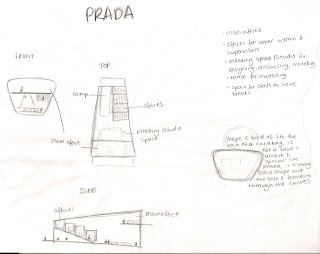 PRADA
· main office
· offices for other admin &
supervisors
· meeting space/studio for
designing, discussing, modeling
· ramp for modeling
· space for staff to have
breaks
FRONT
TOP
ramp
offices
meeting/studio
space
main office
shape is kind of like the
base of a handbag, is
not a basic
unique &
special like
Prada, is a strong
solid shape but
one side is feminine
through the curves
SIDE
offices
main office